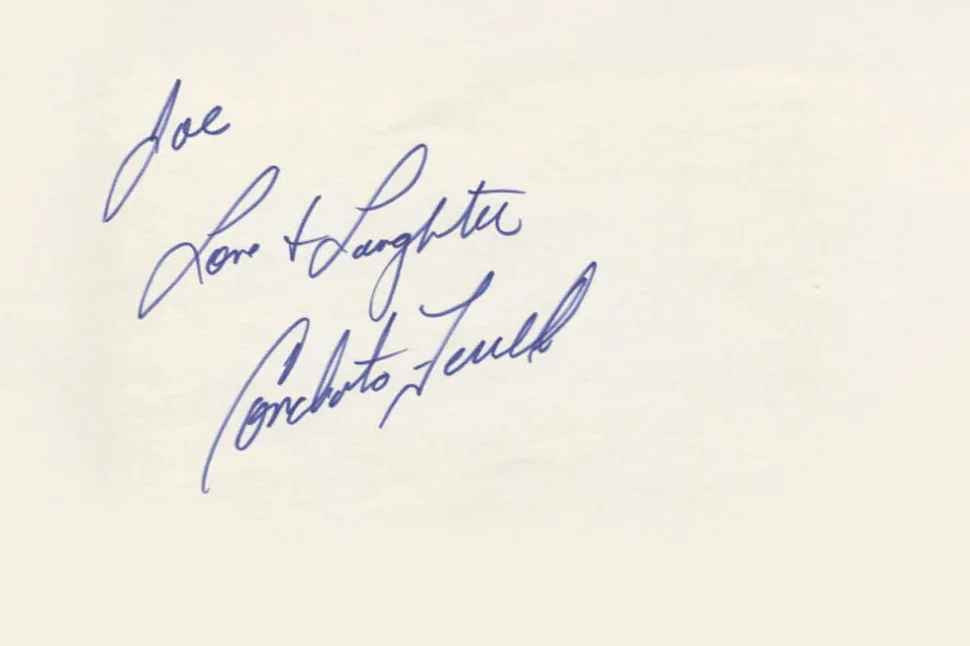 Joe
Love + Laughter
Conchata Ferrell